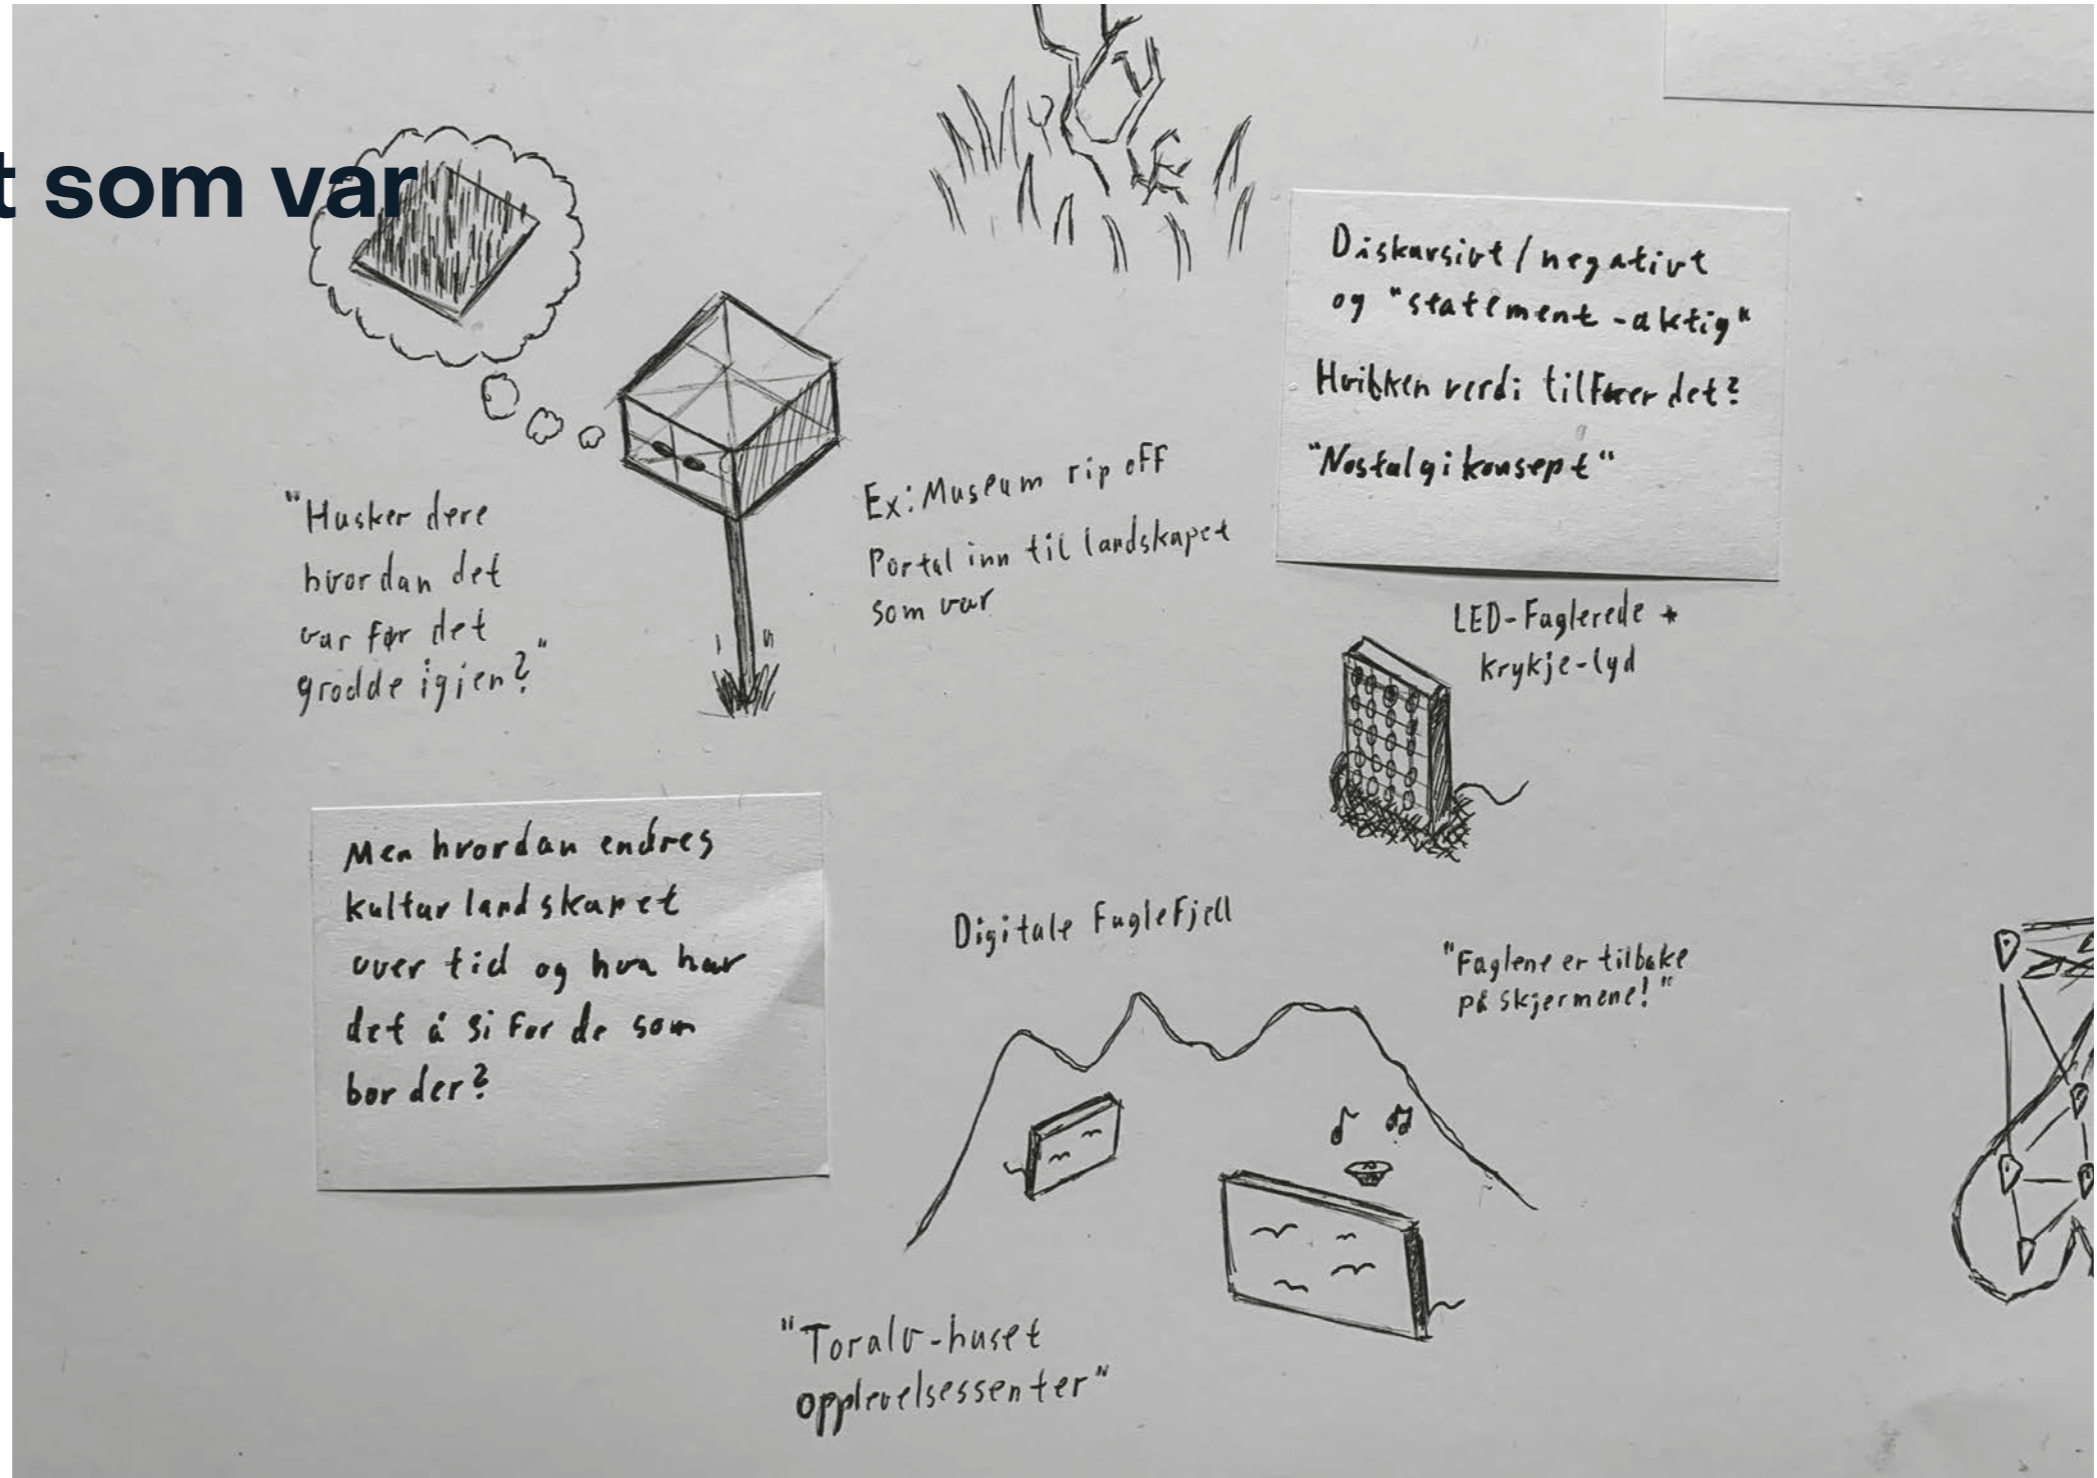 t som var
"Husker dere
hvordan det
var før det
grodde igjen?"
Ex: Museum rip off
Portal inn til landskapet
som var
Diskursivt / negativt
og "statement-aktig"
Hvilken verdi tilfører det?
"Nostalgikonsept"
LED-Fuglerede +
krykje-lyd
Men hvordan endres
kulturlandskapet
over tid og hva har
det å si for de som
bor der?
Digitale Fuglefjell
"Fuglene er tilbake
på skjermene!"
"Toralv-huset
opplevelsessenter"